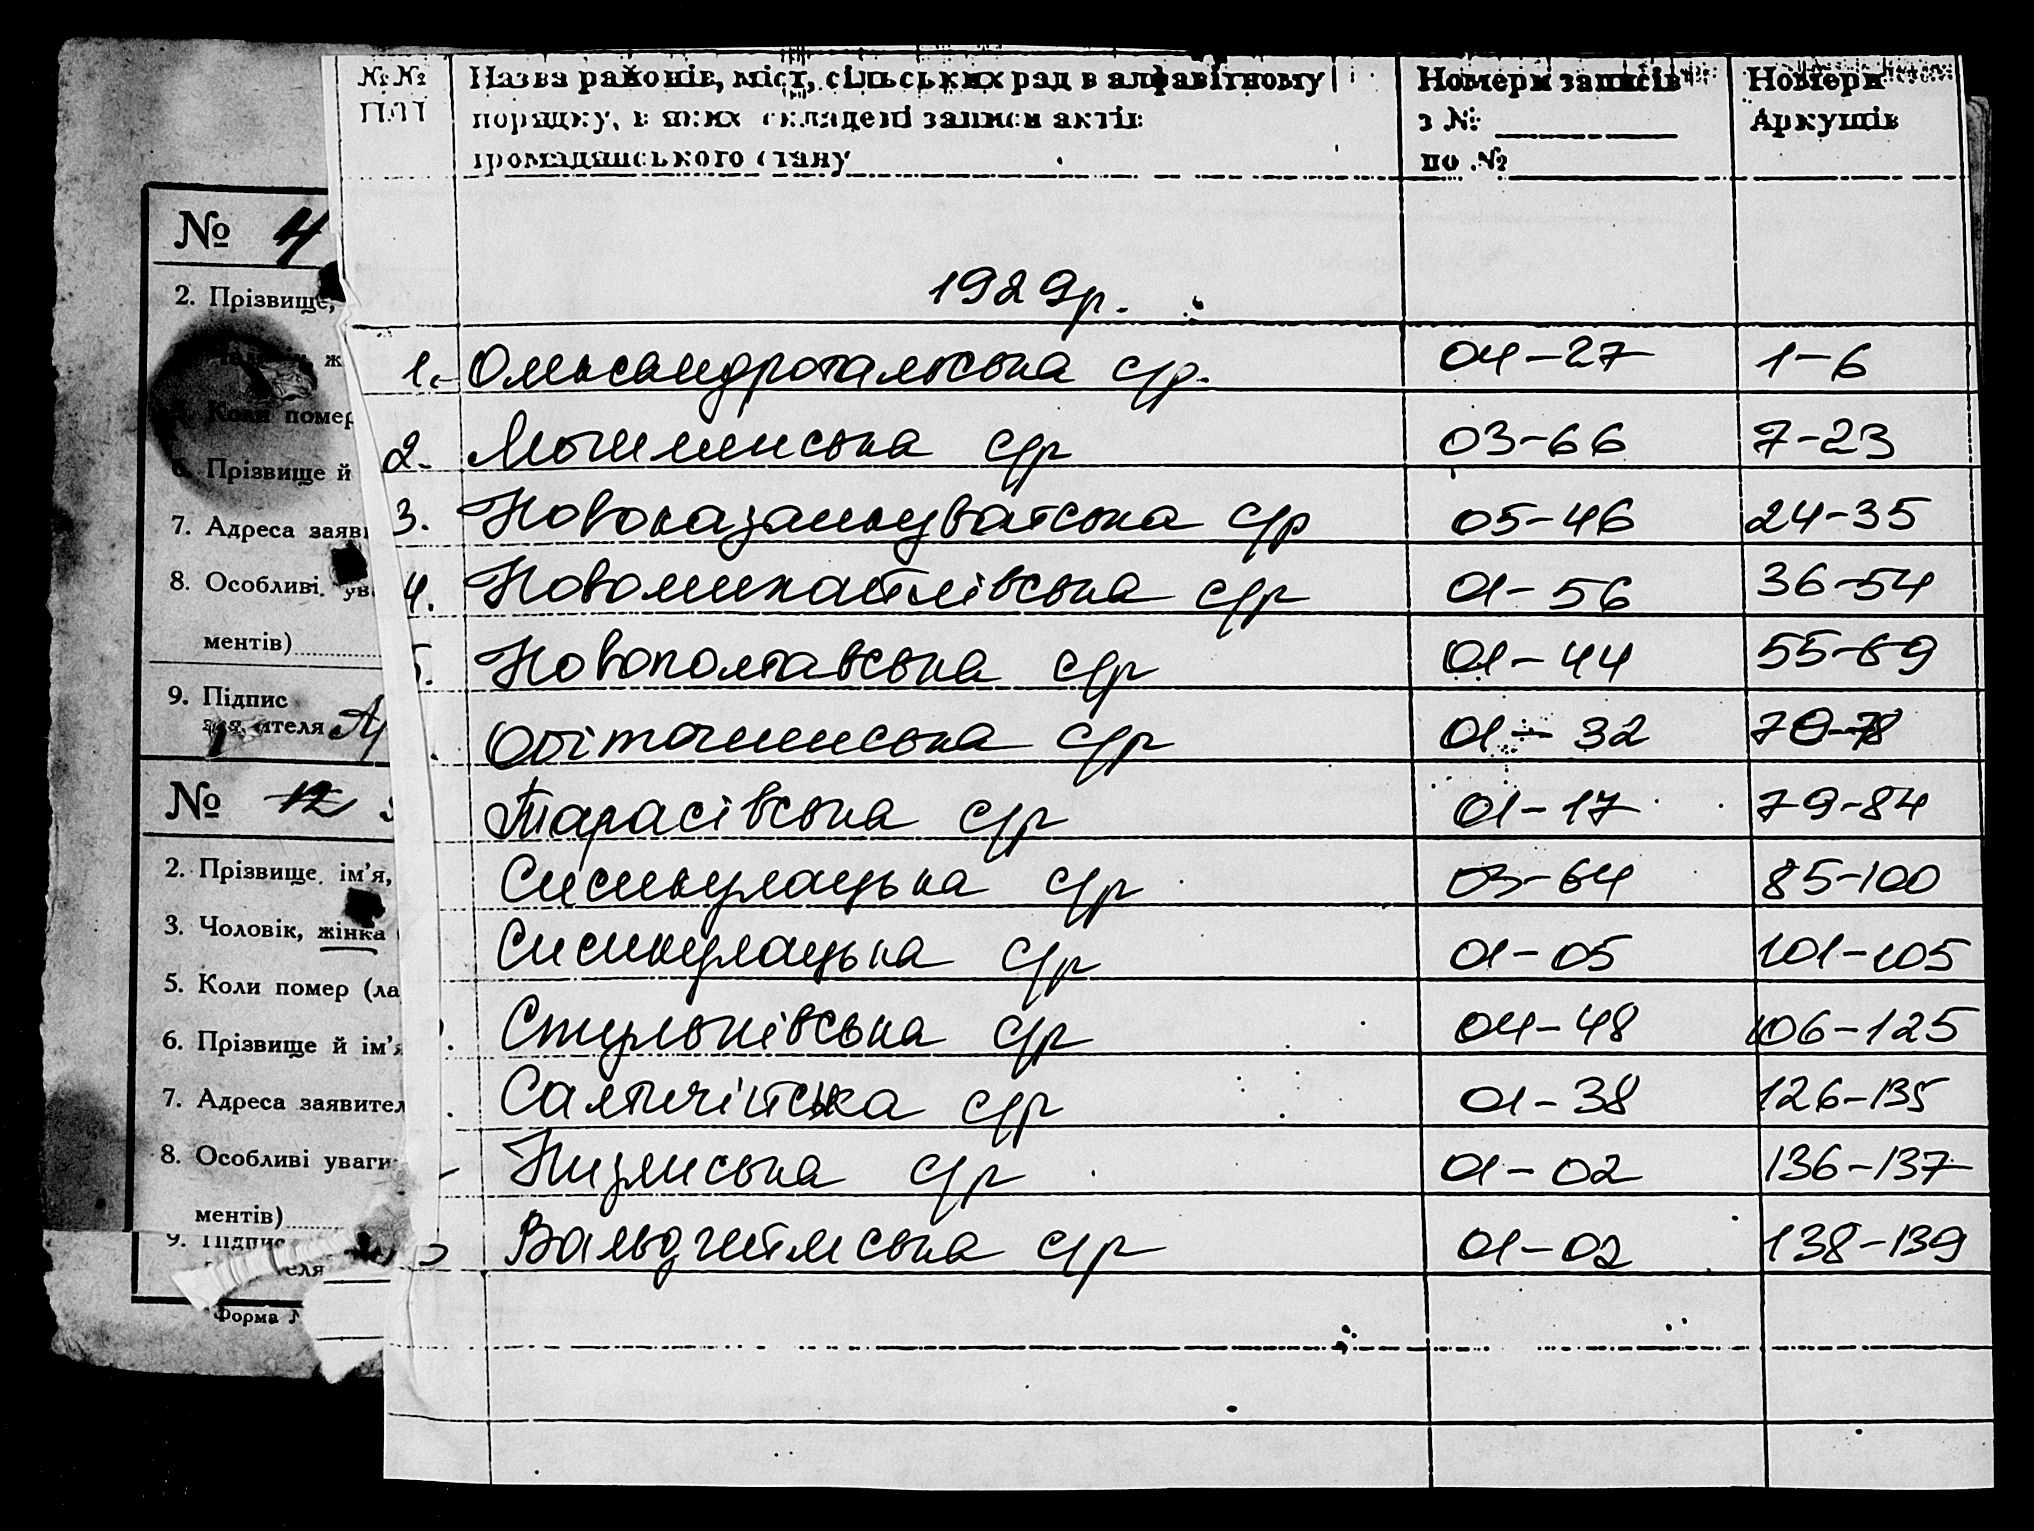 №№ Назва районів, міст, сільських рад в алфавітному Номери записів Номери
П/П порядку, в яких складені записи актів з № Аркушів
громадянського стану по №
1929р.
1. Олександротальська с/р. 04-27 1-6
2. с/р 03-66 7-23
3. Новоказанкуватська с/р 05-46 24-35
4. Новомихайлівська с/р 01-56 36-54
5. Новополтавська с/р 01-44 55-69
Обіточненська с/р 01-32 70-78
Тарасівська с/р 01-17 79-84
Сисикулацька с/р 03-64 85-100
Сисикулацька с/р 01-05 101-105
Стульнівська с/р 04-48 106-125
с/р 01-38 126-135
с/р 01-02 136-137
Вальдгеймська с/р 01-02 138-139
№ 4
2. Прізвище,
ж
Коли помер
6. Прізвище й
7. Адреса заяв
8. Особливі ув
ментів)
9. Підпис
заявителя
№ 12
2. Прізвище, ім'я,
3. Чоловік, жінка
5. Коли помер (ла
6. Прізвище й ім'я
7. Адреса заявител
8. Особливі уваги
ментів)
9. Підпис
еля
Форма